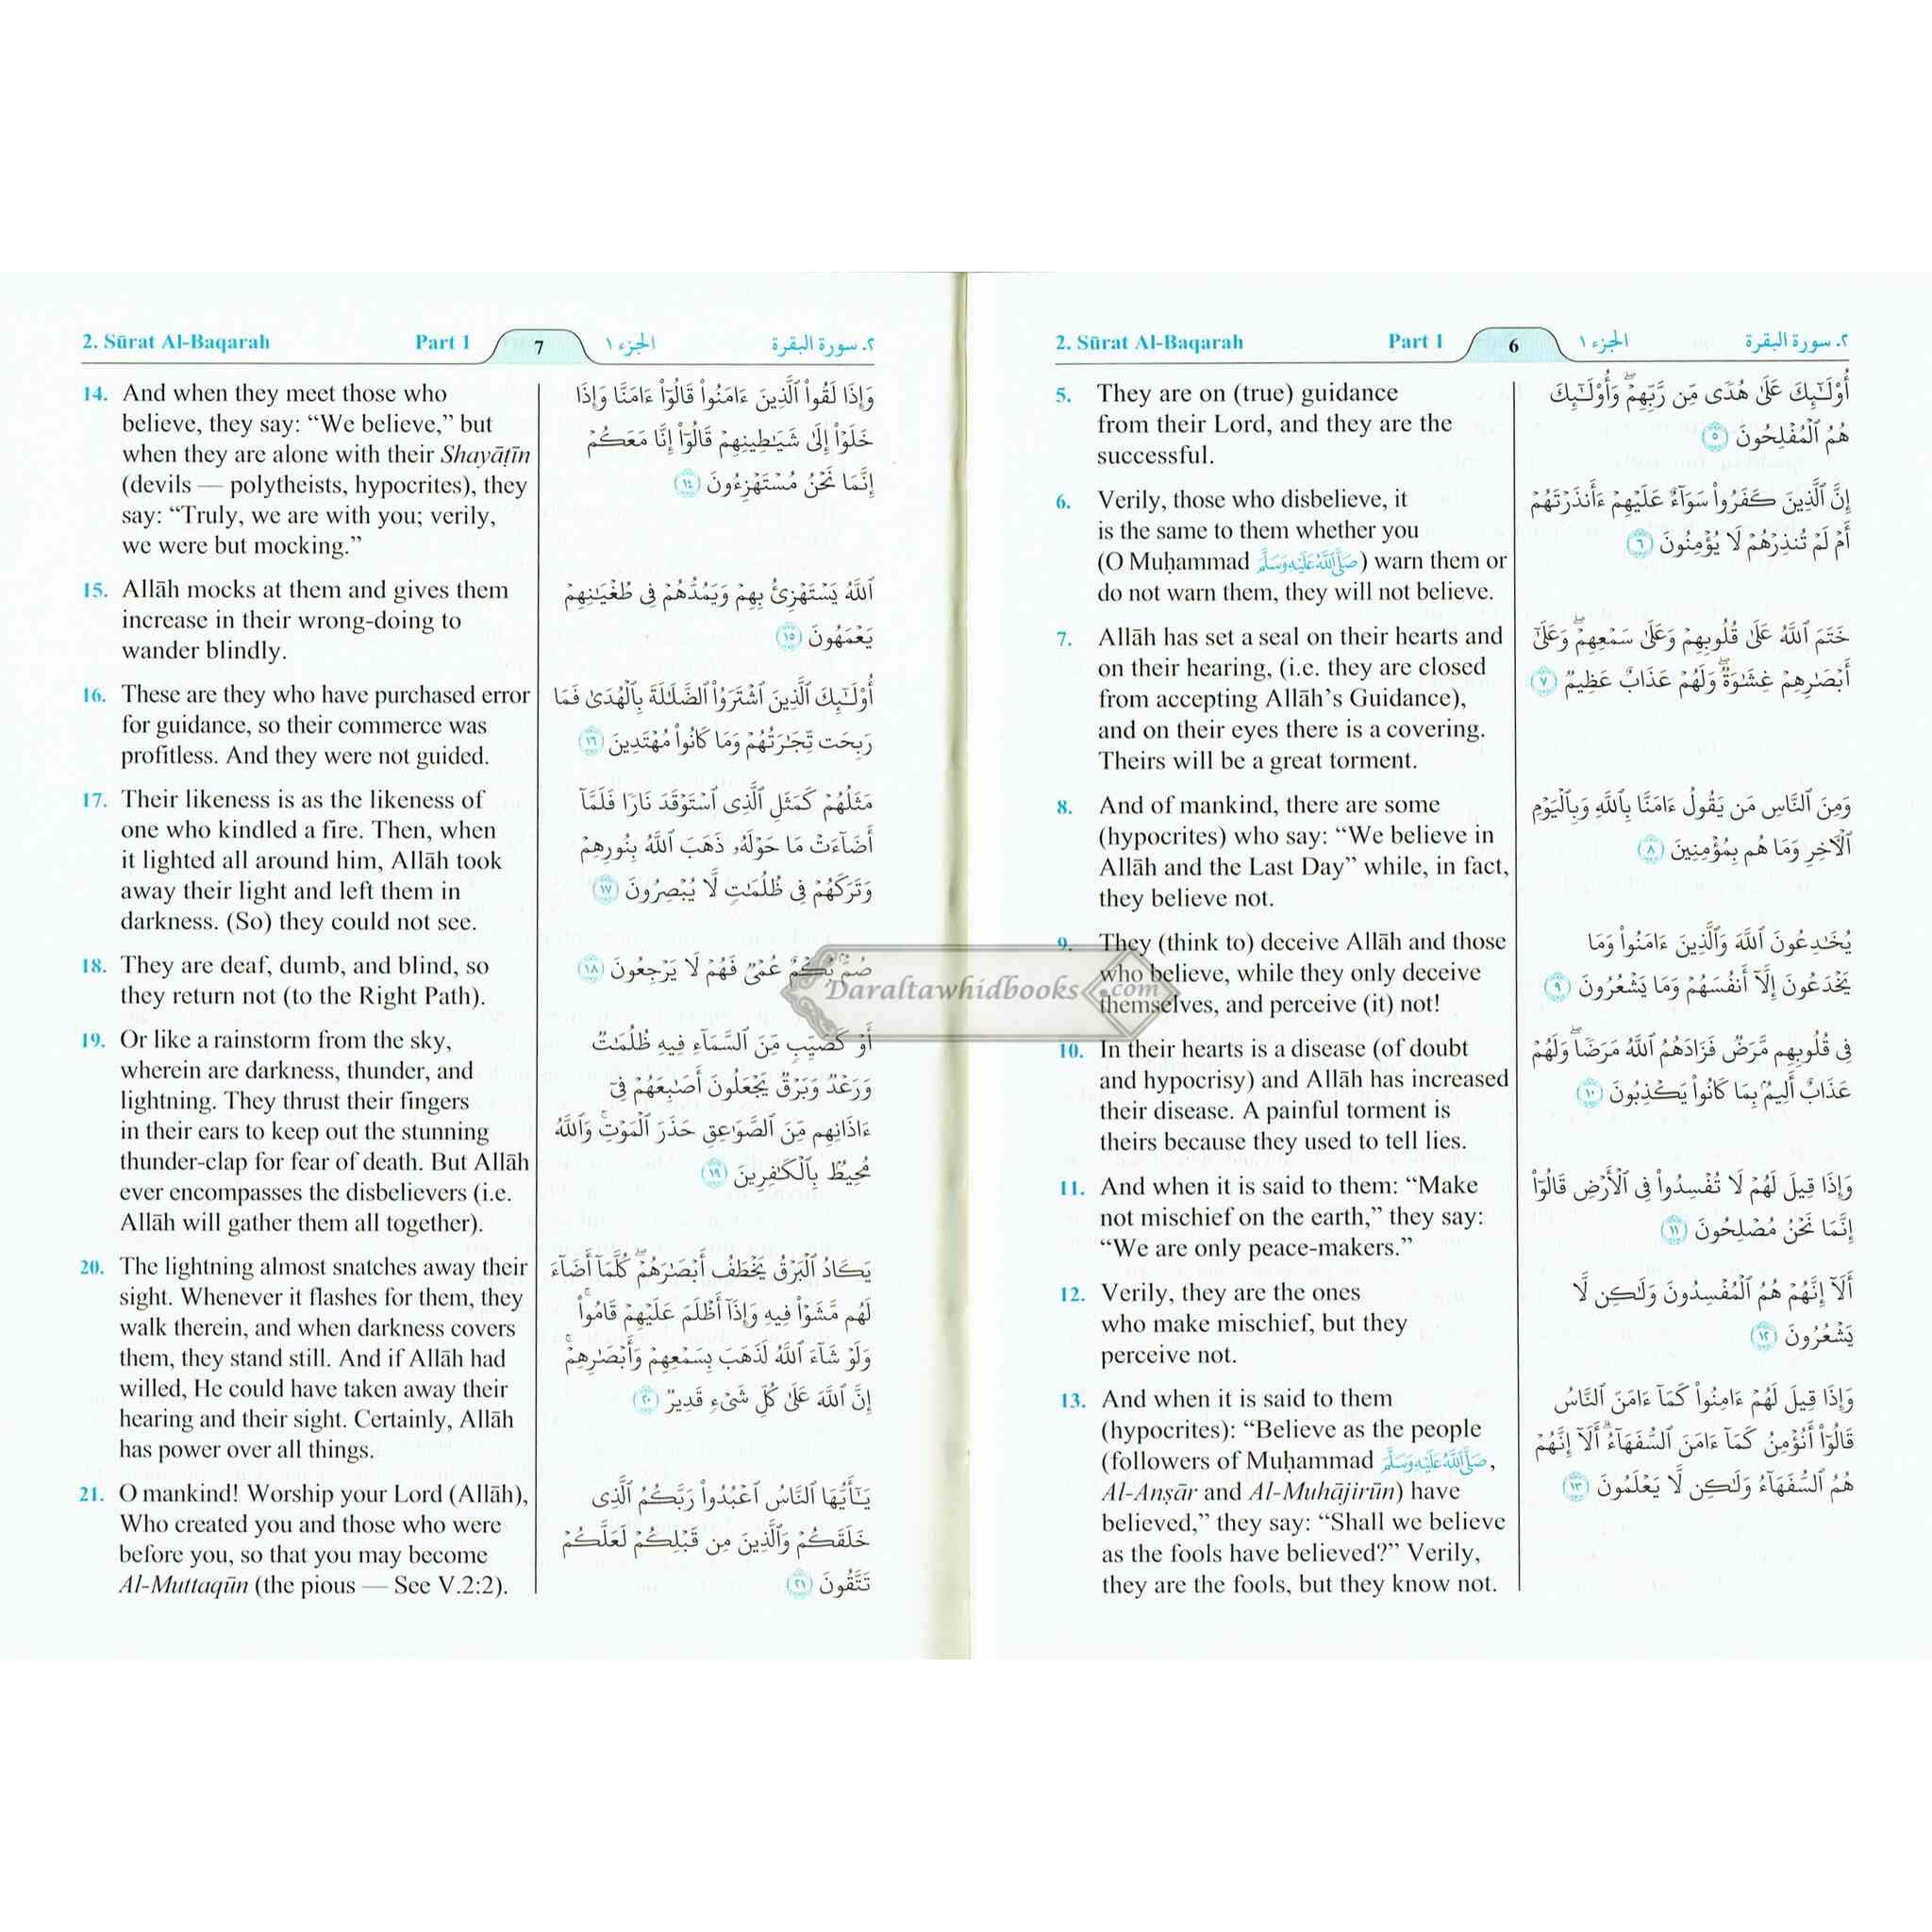 2. Sūrat Al-Baqarah
Part 1
6
الجزء ١
٢. سورة البقرة
5. They are on (true) guidance
from their Lord, and they are the
successful.
6. Verily, those who disbelieve, it
is the same to them whether you
(O Muḥammad صَلَّى اللَّهُ عَلَيْهِ وَسَلَّمَ) warn them or
do not warn them, they will not believe.
7. Allāh has set a seal on their hearts and
on their hearing, (i.e. they are closed
from accepting Allāh’s Guidance),
and on their eyes there is a covering.
Theirs will be a great torment.
8. And of mankind, there are some
(hypocrites) who say: “We believe in
Allāh and the Last Day” while, in fact,
they believe not.
9. They (think to) deceive Allāh and those
who believe, while they only deceive
themselves, and perceive (it) not!
10. In their hearts is a disease (of doubt
and hypocrisy) and Allāh has increased
their disease. A painful torment is
theirs because they used to tell lies.
11. And when it is said to them: “Make
not mischief on the earth,” they say:
“We are only peace-makers.”
12. Verily, they are the ones
who make mischief, but they
perceive not.
13. And when it is said to them
(hypocrites): “Believe as the people
(followers of Muḥammad صَلَّى اللَّهُ عَلَيْهِ وَسَلَّمَ,
Al-Anṣār and Al-Muhājirūn) have
believed,” they say: “Shall we believe
as the fools have believed?” Verily,
they are the fools, but they know not.
أُوْلَٰٓئِكَ عَلَىٰ هُدٗى مِّن رَّبِّهِمۡۖ وَأُوْلَٰٓئِكَ
هُمُ ٱلۡمُفۡلِحُونَ ٥
إِنَّ ٱلَّذِينَ كَفَرُواْ سَوَآءٌ عَلَيۡهِمۡ ءَأَنذَرۡتَهُمۡ
أَمۡ لَمۡ تُنذِرۡهُمۡ لَا يُؤۡمِنُونَ ٦
خَتَمَ ٱللَّهُ عَلَىٰ قُلُوبِهِمۡ وَعَلَىٰ سَمۡعِهِمۡۖ وَعَلَىٰٓ
أَبۡصَٰرِهِمۡ غِشَٰوَةٞۖ وَلَهُمۡ عَذَابٌ عَظِيمٞ ٧
وَمِنَ ٱلنَّاسِ مَن يَقُولُ ءَامَنَّا بِٱللَّهِ وَبِٱلۡيَوۡمِ
ٱلۡأٓخِرِ وَمَا هُم بِمُؤۡمِنِينَ ٨
يُخَٰدِعُونَ ٱللَّهَ وَٱلَّذِينَ ءَامَنُواْ وَمَا
يَخۡدَعُونَ إِلَّآ أَنفُسَهُمۡ وَمَا يَشۡعُرُونَ ٩
فِي قُلُوبِهِم مَّرَضٞ فَزَادَهُمُ ٱللَّهُ مَرَضٗاۖ وَلَهُمۡ
عَذَابٌ أَلِيمُۢ بِمَا كَانُواْ يَكۡذِبُونَ ١٠
وَإِذَا قِيلَ لَهُمۡ لَا تُفۡسِدُواْ فِي ٱلۡأَرۡضِ قَالُوٓاْ
إِنَّمَا نَحۡنُ مُصۡلِحُونَ ١١
أَلَآ إِنَّهُمۡ هُمُ ٱلۡمُفۡسِدُونَ وَلَٰكِن لَّا
يَشۡعُرُونَ ١٢
وَإِذَا قِيلَ لَهُمۡ ءَامِنُواْ كَمَآ ءَامَنَ ٱلنَّاسُ
قَالُوٓاْ أَنُؤۡمِنُ كَمَآ ءَامَنَ ٱلسُّفَهَآءُۗ أَلَآ إِنَّهُمۡ
هُمُ ٱلسُّفَهَآءُ وَلَٰكِن لَّا يَعۡلَمُونَ ١٣
2. Sūrat Al-Baqarah
Part 1
7
الجزء ١
٢. سورة البقرة
14. And when they meet those who
believe, they say: “We believe,” but
when they are alone with their Shayāṭīn
(devils — polytheists, hypocrites), they
say: “Truly, we are with you; verily,
we were but mocking.”
15. Allāh mocks at them and gives them
increase in their wrong-doing to
wander blindly.
16. These are they who have purchased error
for guidance, so their commerce was
profitless. And they were not guided.
17. Their likeness is as the likeness of
one who kindled a fire. Then, when
it lighted all around him, Allāh took
away their light and left them in
darkness. (So) they could not see.
18. They are deaf, dumb, and blind, so
they return not (to the Right Path).
19. Or like a rainstorm from the sky,
wherein are darkness, thunder, and
lightning. They thrust their fingers
in their ears to keep out the stunning
thunder-clap for fear of death. But Allāh
ever encompasses the disbelievers (i.e.
Allāh will gather them all together).
20. The lightning almost snatches away their
sight. Whenever it flashes for them, they
walk therein, and when darkness covers
them, they stand still. And if Allāh had
willed, He could have taken away their
hearing and their sight. Certainly, Allāh
has power over all things.
21. O mankind! Worship your Lord (Allāh),
Who created you and those who were
before you, so that you may become
Al-Muttaqūn (the pious — See V.2:2).
وَإِذَا لَقُواْ ٱلَّذِينَ ءَامَنُواْ قَالُوٓاْ ءَامَنَّا وَإِذَا
خَلَوۡاْ إِلَىٰ شَيَٰطِينِهِمۡ قَالُوٓاْ إِنَّا مَعَكُمۡ
إِنَّمَا نَحۡنُ مُسۡتَهۡزِءُونَ ١٤
ٱللَّهُ يَسۡتَهۡزِئُ بِهِمۡ وَيَمُدُّهُمۡ فِي طُغۡيَٰنِهِمۡ
يَعۡمَهُونَ ١٥
أُوْلَٰٓئِكَ ٱلَّذِينَ ٱشۡتَرَوُاْ ٱلضَّلَٰلَةَ بِٱلۡهُدَىٰ فَمَا
رَبِحَت تِّجَٰرَتُهُمۡ وَمَا كَانُواْ مُهۡتَدِينَ ١٦
مَثَلُهُمۡ كَمَثَلِ ٱلَّذِي ٱسۡتَوۡقَدَ نَارٗا فَلَمَّآ
أَضَآءَتۡ مَا حَوۡلَهُۥ ذَهَبَ ٱللَّهُ بِنُورِهِمۡ
وَتَرَكَهُمۡ فِي ظُلُمَٰتٖ لَّا يُبۡصِرُونَ ١٧
صُمُّۢ بُكۡمٌ عُمۡيٞ فَهُمۡ لَا يَرۡجِعُونَ ١٨
أَوۡ كَصَيِّبٖ مِّنَ ٱلسَّمَآءِ فِيهِ ظُلُمَٰتٞ
وَرَعۡدٞ وَبَرۡقٞ يَجۡعَلُونَ أَصَٰبِعَهُمۡ فِيٓ
ءَاذَانِهِم مِّنَ ٱلصَّوَٰعِقِ حَذَرَ ٱلۡمَوۡتِۚ وَٱللَّهُ
مُحِيطُۢ بِٱلۡكَٰفِرِينَ ١٩
يَكَادُ ٱلۡبَرۡقُ يَخۡطَفُ أَبۡصَٰرَهُمۡۖ كُلَّمَآ أَضَآءَ
لَهُم مَّشَوۡاْ فِيهِ وَإِذَآ أَظۡلَمَ عَلَيۡهِمۡ قَامُواْۚ
وَلَوۡ شَآءَ ٱللَّهُ لَذَهَبَ بِسَمۡعِهِمۡ وَأَبۡصَٰرِهِمۡۚ
إِنَّ ٱللَّهَ عَلَىٰ كُلِّ شَيۡءٖ قَدِيرٞ ٢٠
يَٰٓأَيُّهَا ٱلنَّاسُ ٱعۡبُدُواْ رَبَّكُمُ ٱلَّذِي
خَلَقَكُمۡ وَٱلَّذِينَ مِن قَبۡلِكُمۡ لَعَلَّكُمۡ
تَتَّقُونَ ٢١
Daraltawhidbooks.com